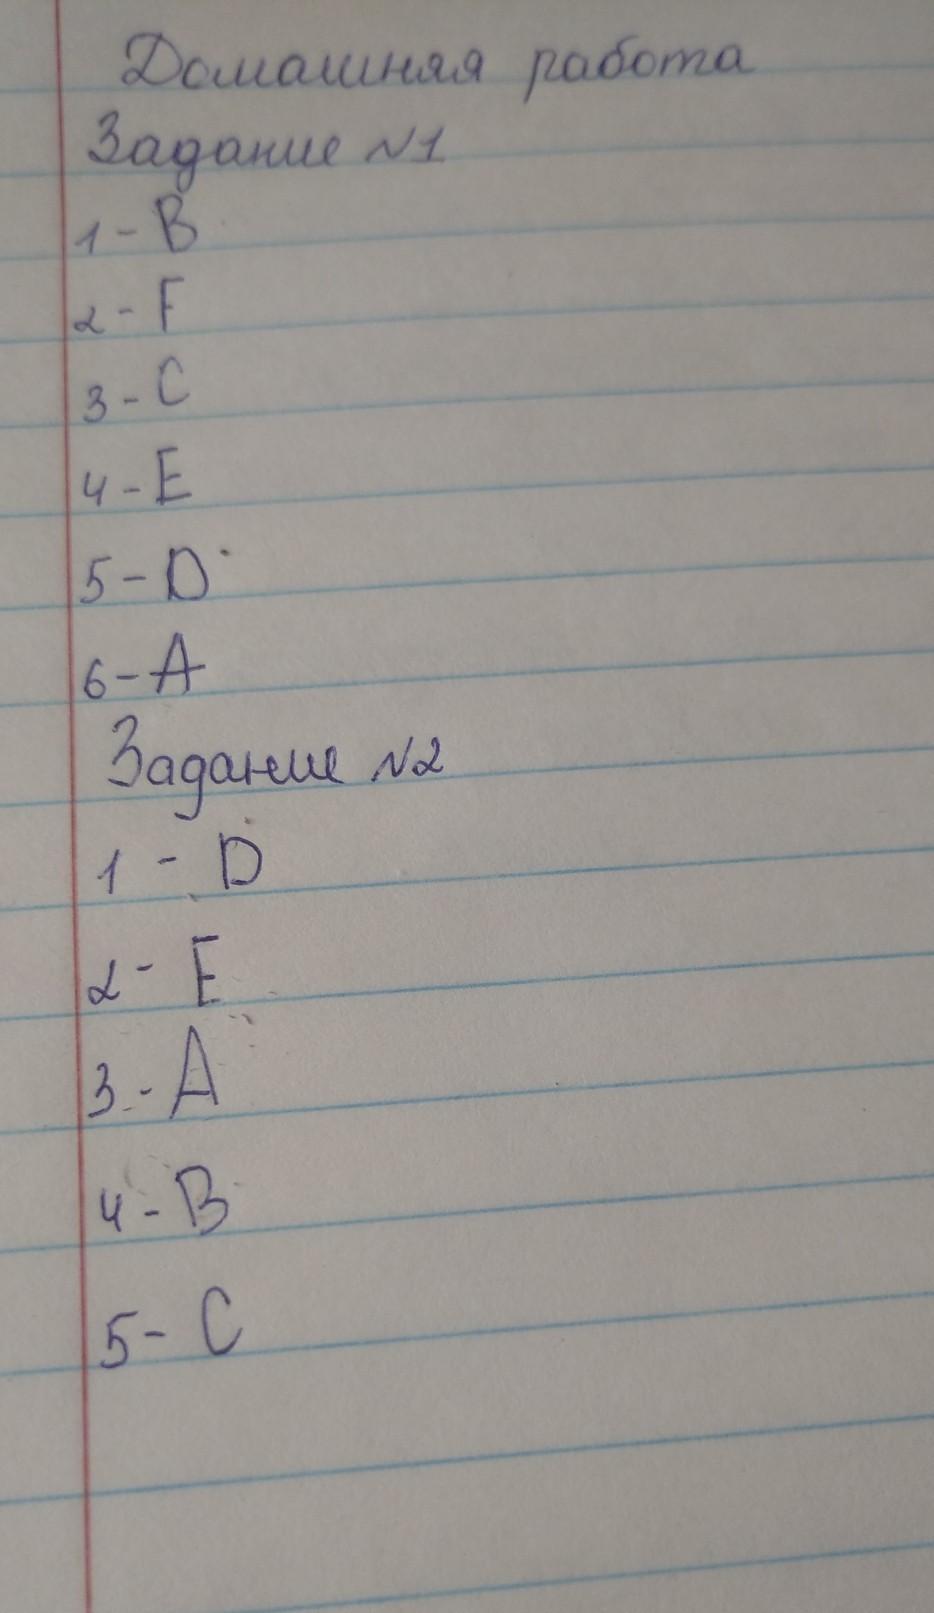 Домашняя работа
Задание №1
1 - B
2 - F
3 - C
4 - E
5 - D
6 - A
Задание №2
1 - D
2 - E
3 - A
4 - B
5 - C